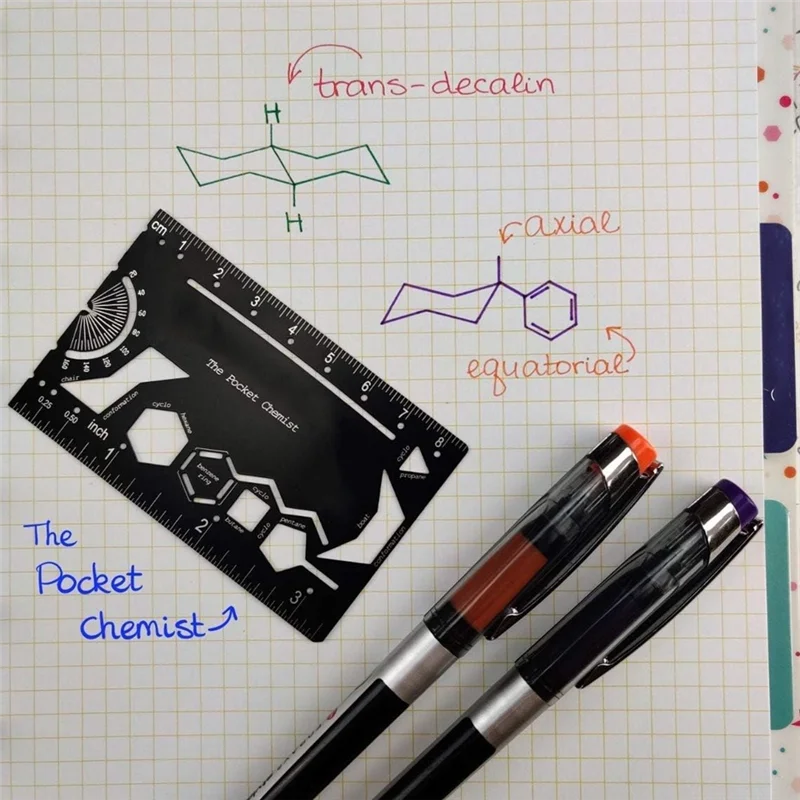 trans-decalin
H
H
axial
equatorial
cm 1 2 3 4 5 6 7 8
The Pocket Chemist
chair
conformation
cyclo
hexane
benzene
ring
cyclo
butane
cyclo
pentane
boat
conformation
cyclo
propane
0.25 0.50 inch 1 2 3
The
Pocket
Chemist